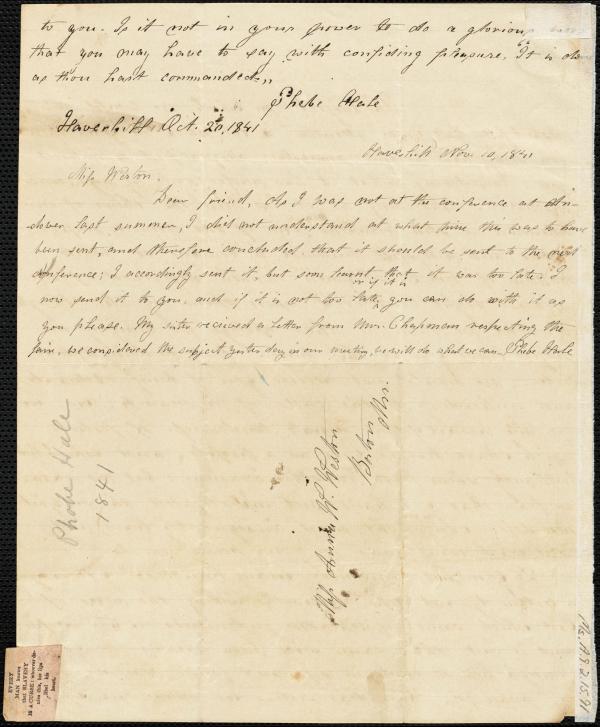 to you. Is it not in your power to do a glorious
that you may have to say with confiding pleasure, It is done
as thou hast commanded."
Phebe Hale
Haverhill Oct. 20, 1841
Haverhill Nov. 10, 1841
Miss Weston.
Dear friend, As I was not at the conference at An-
dover last summer, I did not understand at what time this was to have
been sent, and therefore concluded that it should be sent to the next
conference; I accordingly sent it, but soon learnt that it was too late. I
now send it to you and if it is not too late, or if it is you can do with it as
you please. My sister recieved a letter from Mrs. Chapman respecting the
fair, we considered the subject yesterday in our meeting, we will do what we can. Phebe Hale
Miss W. Weston
Boston
Phobe Hale
1841
EVERY
MAN knows
that SLAVERY
IS A CURSE: whoever de-
nies this, his lips
libel his
heart.
Ms. A.9.2.15.91